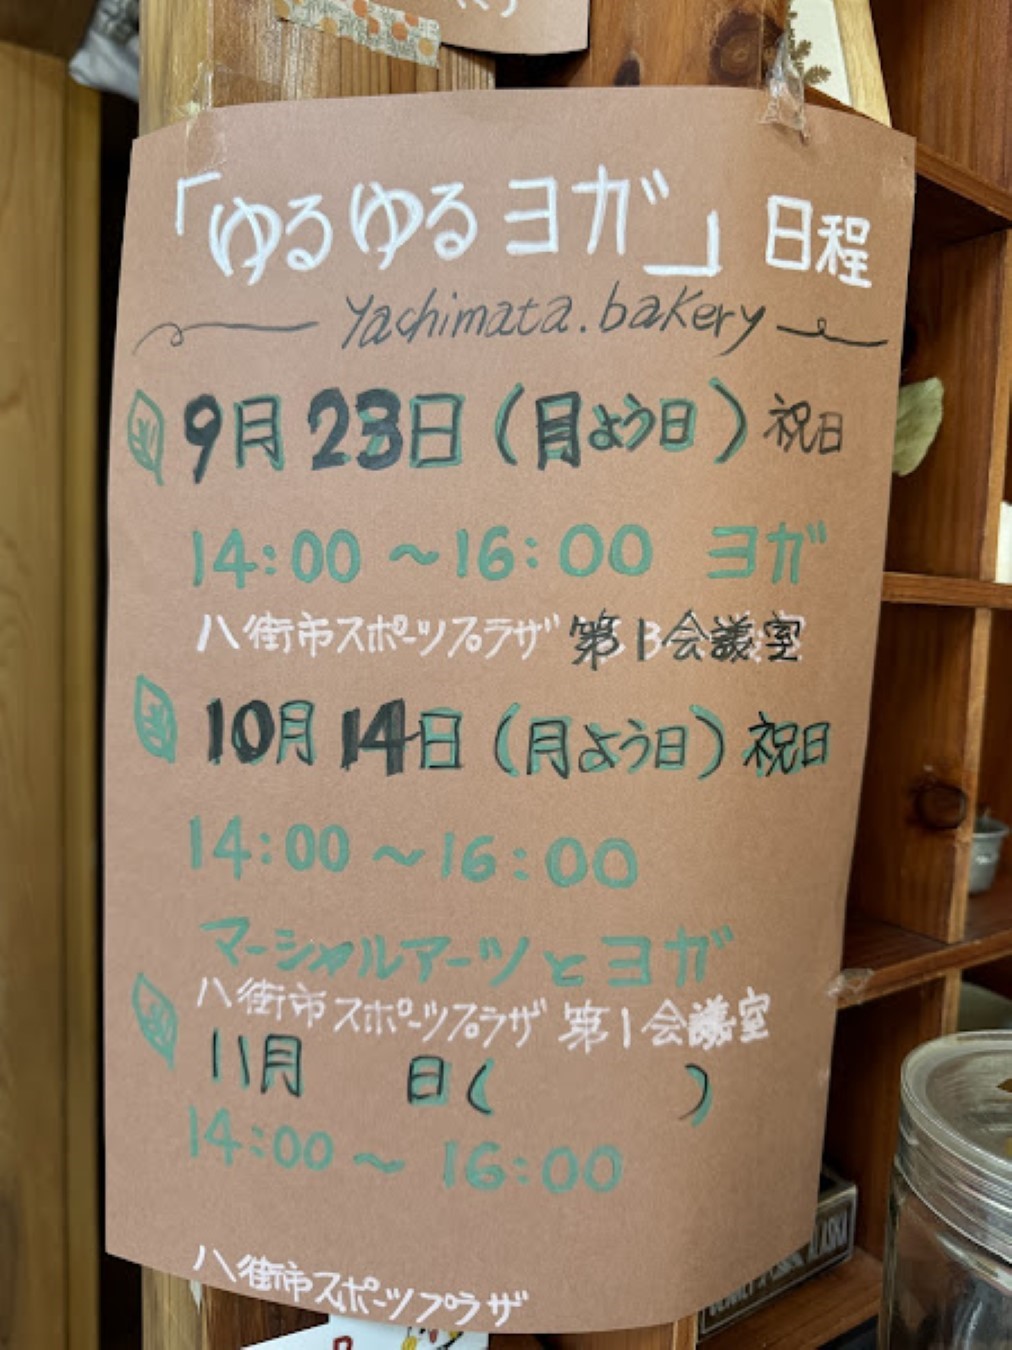 「ゆるゆるヨガ」日程
Yachimata.bakery
9月23日(月よう日)祝日
14:00～16:00 ヨガ
八街市スポーツプラザ 第1会議室
10月14日(月よう日)祝日
14:00～16:00
マーシャルアーツとヨガ
八街市スポーツプラザ 第1会議室
11月 日( )
14:00～16:00
八街市スポーツプラザ